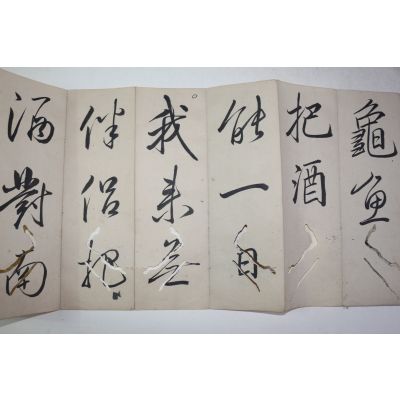 龜魚
把酒
能一日
我来無
伴侶把
酒對南